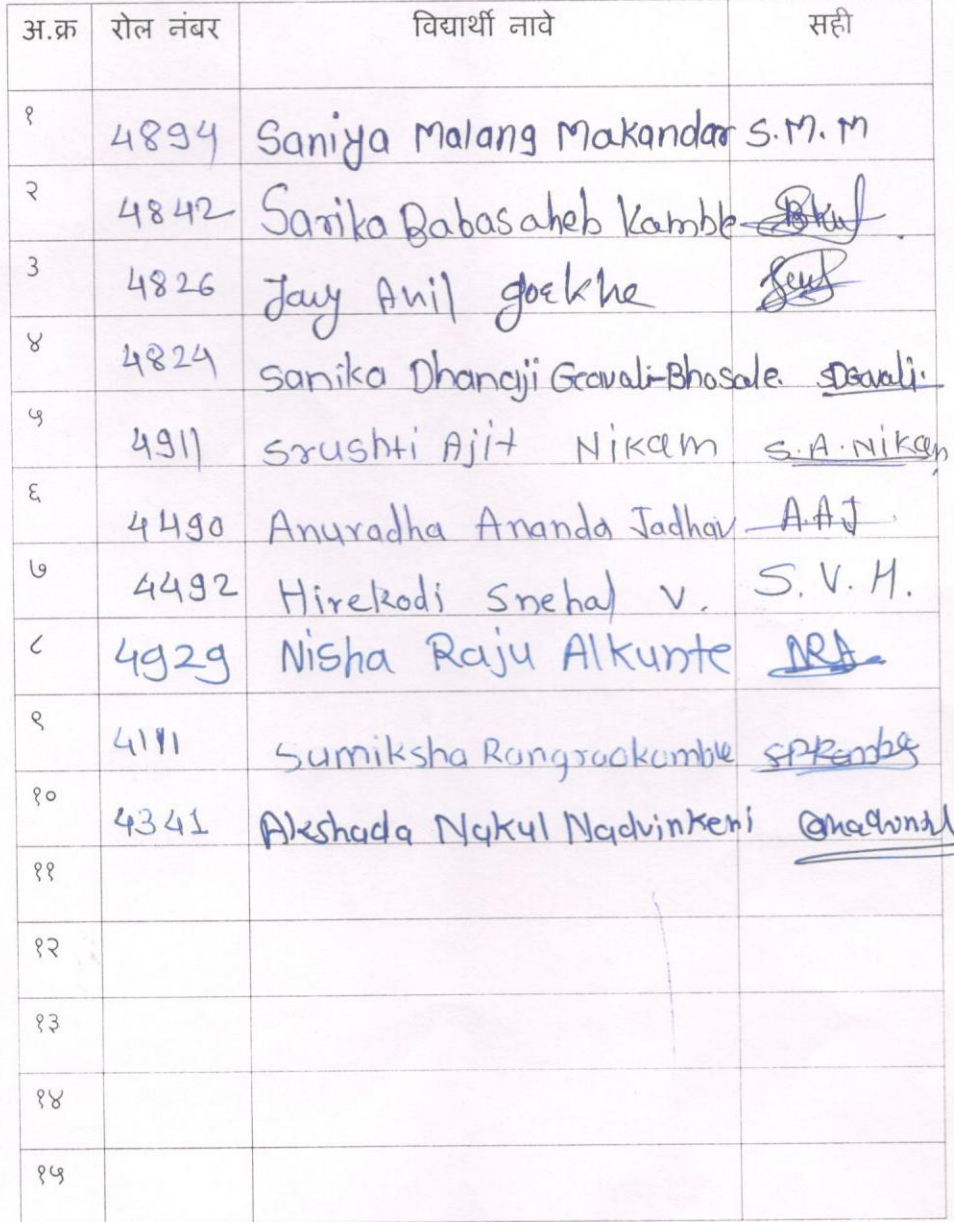 अ.क्र रोल नंबर विद्यार्थी नावे सही
१ 4894 Saniya Malang Makandar S.M.M
२ 4842 Sarika Babasaheb Kamble
३ 4826 Jay Anil Goekhe
४ 4824 Sanika Dhanaji Gavali-Bhosale. SDGavali.
५ 4911 Srushti Ajit Nikam S.A.Nikam
६ 4490 Anuradha Ananda Jadhav A.A.J
७ 4492 Hirekodi Snehal V. S.V.H.
८ 4929 Nisha Raju Alkunte NRA
९ 4111 Samiksha Rangraokamble SRKamble
१० 4341 Akshada Nakul Nadvinkeri
११
१२
१३
१४
१५